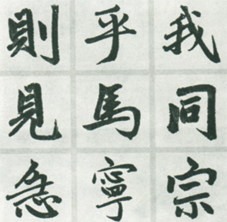 我同宗
乎馬寧
則見急